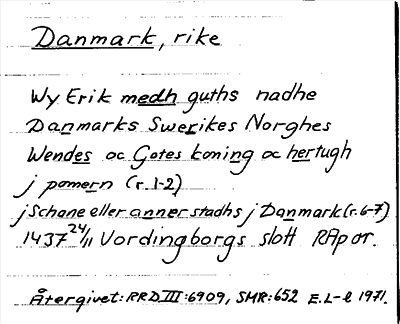 Danmark, rike
Wy Erik medh guths nadhe
Danmarks Swerikes Norghes
Wendes oc Gotes koning oc hertugh
j pomern (r. 1-2)
j Schane eller annerstadhs j Danmark (r. 6-7)
1437 24/11 Vordingborgs slott RAp or.
Återgivet: RRD III: 6909, SMR: 652 E.L-l 1971.